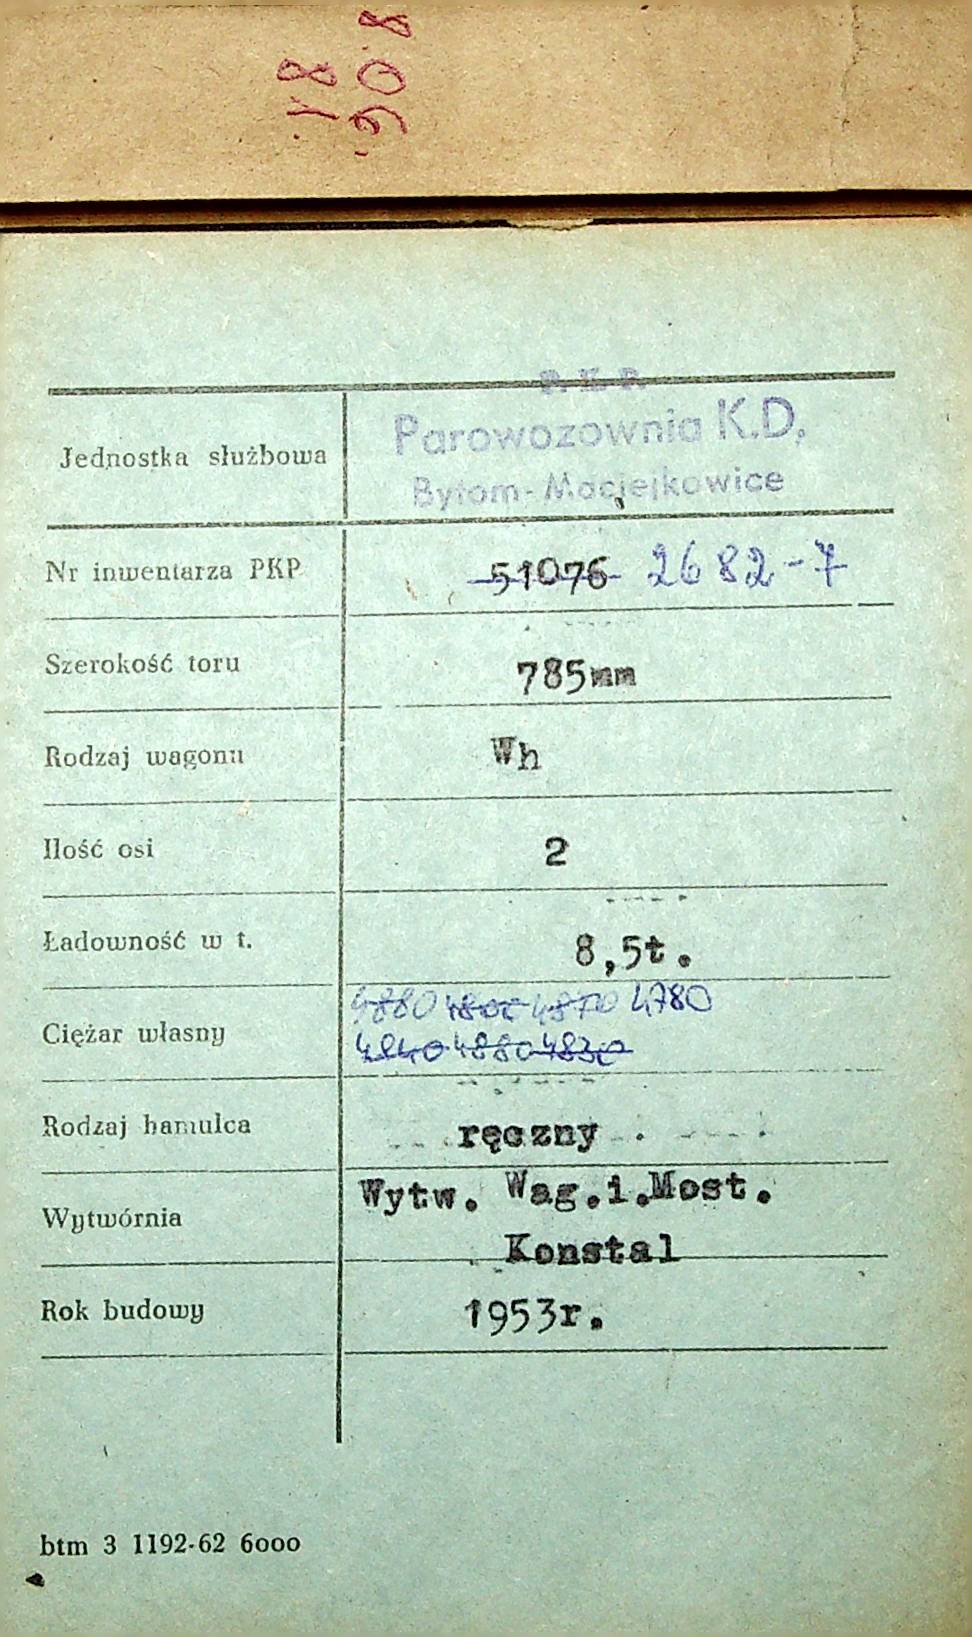 P. K. P.
Parowozownia K.D.
Bytom-Maciejkowice
Jednostka służbowa
Nr inwentarza PKP 51076 2682-7
Szerokość toru 785mm
Rodzaj wagonu Wh
Ilość osi 2
Ładowność w t. 8,5t.
4880 4870 4780
Ciężar własny
4840 4880 4830
Rodzaj hamulca ręczny
Wytwórnia Wytw. Wag.i.Most.
Konstal
Rok budowy 1953r.
btm 3 1192-62 6000